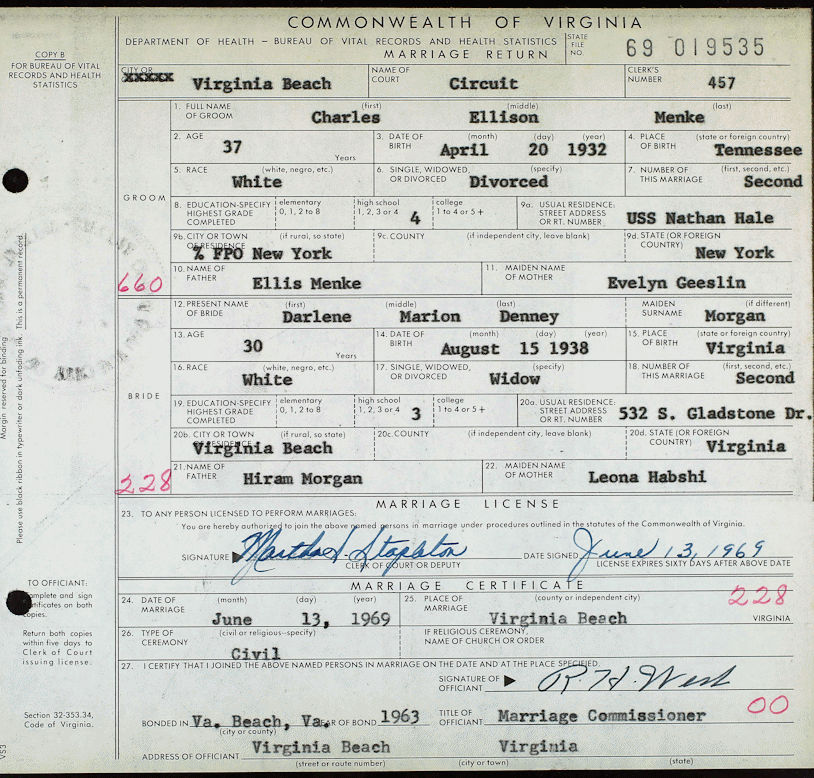 COMMONWEALTH OF VIRGINIA
DEPARTMENT OF HEALTH — BUREAU OF VITAL RECORDS AND HEALTH STATISTICS
MARRIAGE RETURN
STATE FILE NO. 69 019535
COPY B
FOR BUREAU OF VITAL
RECORDS AND HEALTH
STATISTICS
CITY OR XXXXX Virginia Beach NAME OF COURT Circuit CLERK'S NUMBER 457
GROOM
1. FULL NAME OF GROOM (first) Charles (middle) Ellison (last) Menke
2. AGE 37 Years 3. DATE OF BIRTH (month) April (day) 20 (year) 1932 4. PLACE OF BIRTH (state or foreign country) Tennessee
5. RACE (white, negro, etc.) White 6. SINGLE, WIDOWED, OR DIVORCED (specify) Divorced 7. NUMBER OF THIS MARRIAGE (first, second, etc.) Second
8. EDUCATION-SPECIFY HIGHEST GRADE COMPLETED elementary 0, 1, 2 to 8 high school 1, 2, 3 or 4 4 college 1 to 4 or 5 + 9a. USUAL RESIDENCE: STREET ADDRESS OR RT. NUMBER USS Nathan Hale
9b. CITY OR TOWN OF RESIDENCE (if rural, so state) % FPO New York 9c. COUNTY (if independent city, leave blank) 9d. STATE (OR FOREIGN COUNTRY) New York
660
10. NAME OF FATHER Ellis Menke 11. MAIDEN NAME OF MOTHER Evelyn Geeslin
BRIDE
12. PRESENT NAME OF BRIDE (first) Darlene (middle) Marion (last) Denney MAIDEN SURNAME (if different) Morgan
13. AGE 30 Years 14. DATE OF BIRTH (month) August (day) 15 (year) 1938 15. PLACE OF BIRTH (state or foreign country) Virginia
16. RACE (white, negro, etc.) White 17. SINGLE, WIDOWED, OR DIVORCED (specify) Widow 18. NUMBER OF THIS MARRIAGE (first, second, etc.) Second
19. EDUCATION-SPECIFY HIGHEST GRADE COMPLETED elementary 0, 1, 2 to 8 high school 1, 2, 3 or 4 3 college 1 to 4 or 5 + 20a. USUAL RESIDENCE: STREET ADDRESS OR RT. NUMBER 532 S. Gladstone Dr.
20b. CITY OR TOWN OF RESIDENCE (if rural, so state) Virginia Beach 20c. COUNTY (if independent city, leave blank) 20d. STATE (OR FOREIGN COUNTRY) Virginia
228
21. NAME OF FATHER Hiram Morgan 22. MAIDEN NAME OF MOTHER Leona Habshi
MARRIAGE LICENSE
23. TO ANY PERSON LICENSED TO PERFORM MARRIAGES:
You are hereby authorized to join the above named persons in marriage under procedures outlined in the statutes of the Commonwealth of Virginia.
SIGNATURE Stapleton DATE SIGNED June 13, 1969
CLERK OF COURT OR DEPUTY LICENSE EXPIRES SIXTY DAYS AFTER ABOVE DATE
MARRIAGE CERTIFICATE
24. DATE OF MARRIAGE (month) June (day) 13, (year) 1969 25. PLACE OF MARRIAGE (county or independent city) Virginia Beach 228 VIRGINIA
26. TYPE OF CEREMONY (civil or religious--specify) Civil IF RELIGIOUS CEREMONY, NAME OF CHURCH OR ORDER
27. I CERTIFY THAT I JOINED THE ABOVE NAMED PERSONS IN MARRIAGE ON THE DATE AND AT THE PLACE SPECIFIED.
SIGNATURE OF OFFICIAL R. H. West
BONDED IN Va. Beach, Va. (city or county) YEAR OF BOND 1963 TITLE OF OFFICIAL Marriage Commissioner 00
ADDRESS OF OFFICIAL Virginia Beach Virginia
(street or route number) (city or town) (state)
TO OFFICIAL:
Complete and sign
certificates on both
copies.
Return both copies
within five days to
Clerk of Court
issuing license.
Section 32-353.34,
Code of Virginia.
VS3
Margin reserved for binding
Please use black ribbon in typewriter or dark unfading ink. This is a permanent record.